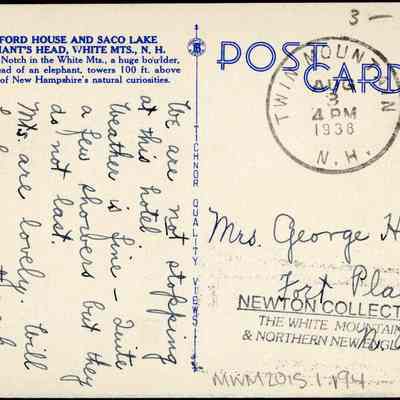 FORD HOUSE AND SACO LAKE
HANT'S HEAD, WHITE MTS., N. H.
Notch in the White Mts., a huge boulder,
ead of an elephant, towers 100 ft. above
of New Hampshire's natural curiosities.
We are not stopping
at this hotel
Weather is fine - Quite
a few showers but they
do not last.
Mts are lovely. Will
TICHNOR QUALITY VIEWS
POST CARD
3 -
TWIN MOUNTAIN
AUG
3
4 PM
1938
N. H.
Mrs. George H
Fort Pla
NEWTON COLLECT
THE WHITE MOUNTAIN
& NORTHERN NEW ENGL
MWM2015.1.194